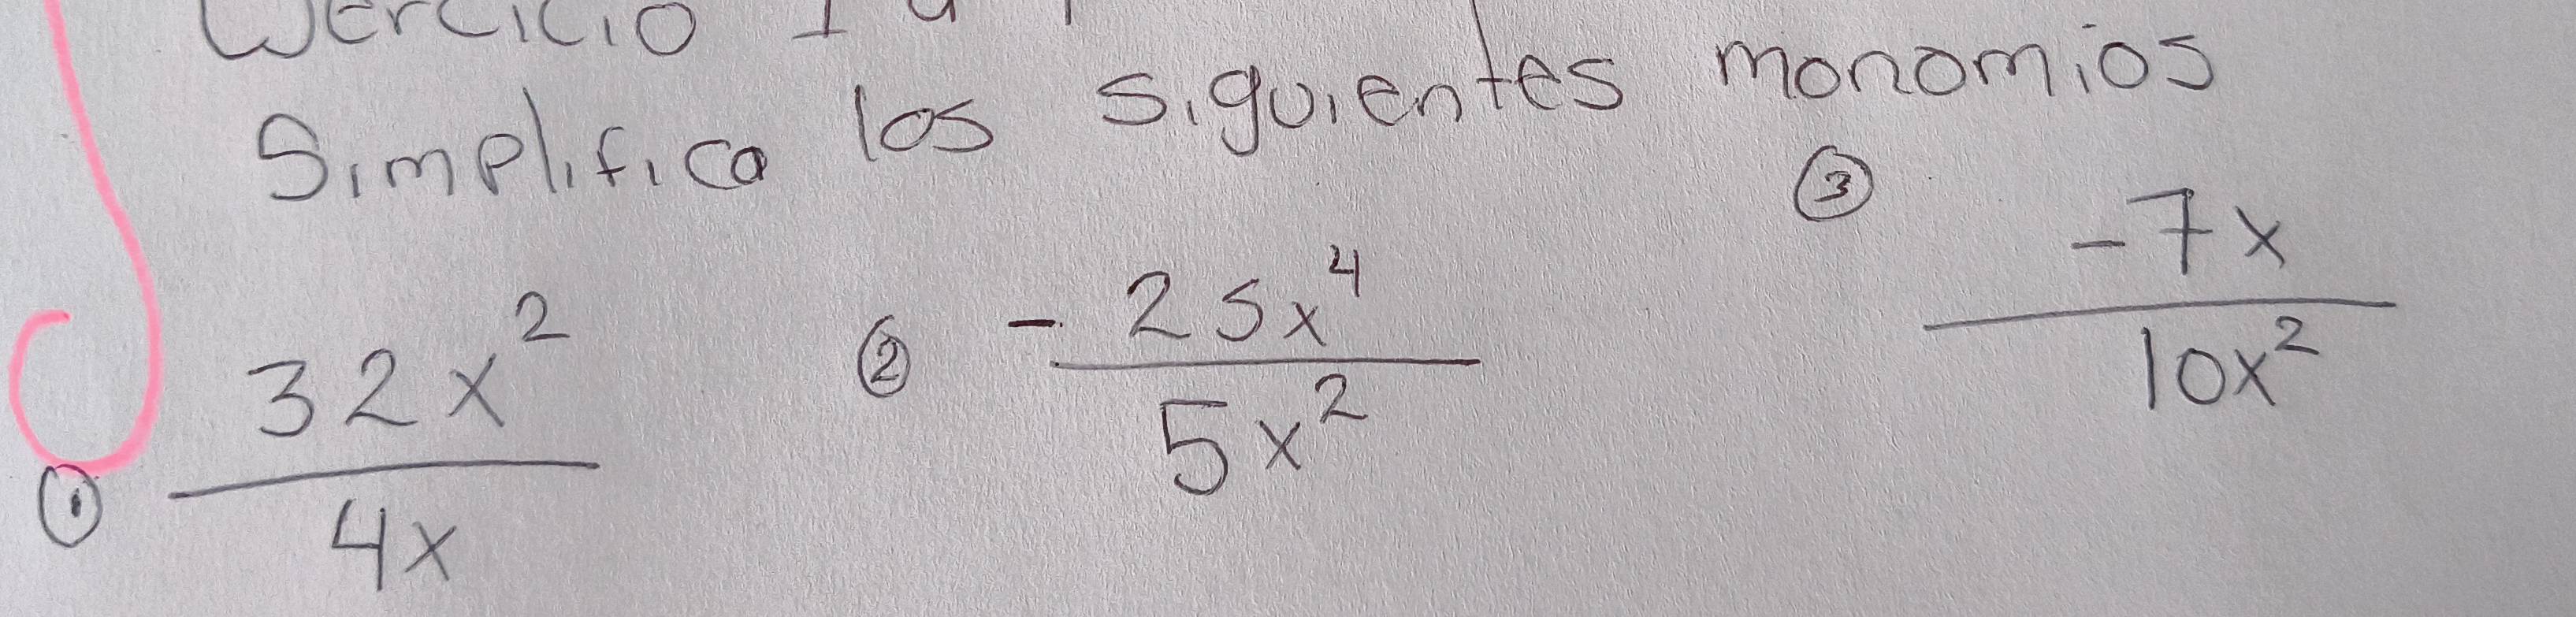 Simplifica los siguientes monomios
① 32x² / 4x
② - 25x⁴ / 5x²
③ -7x / 10x²